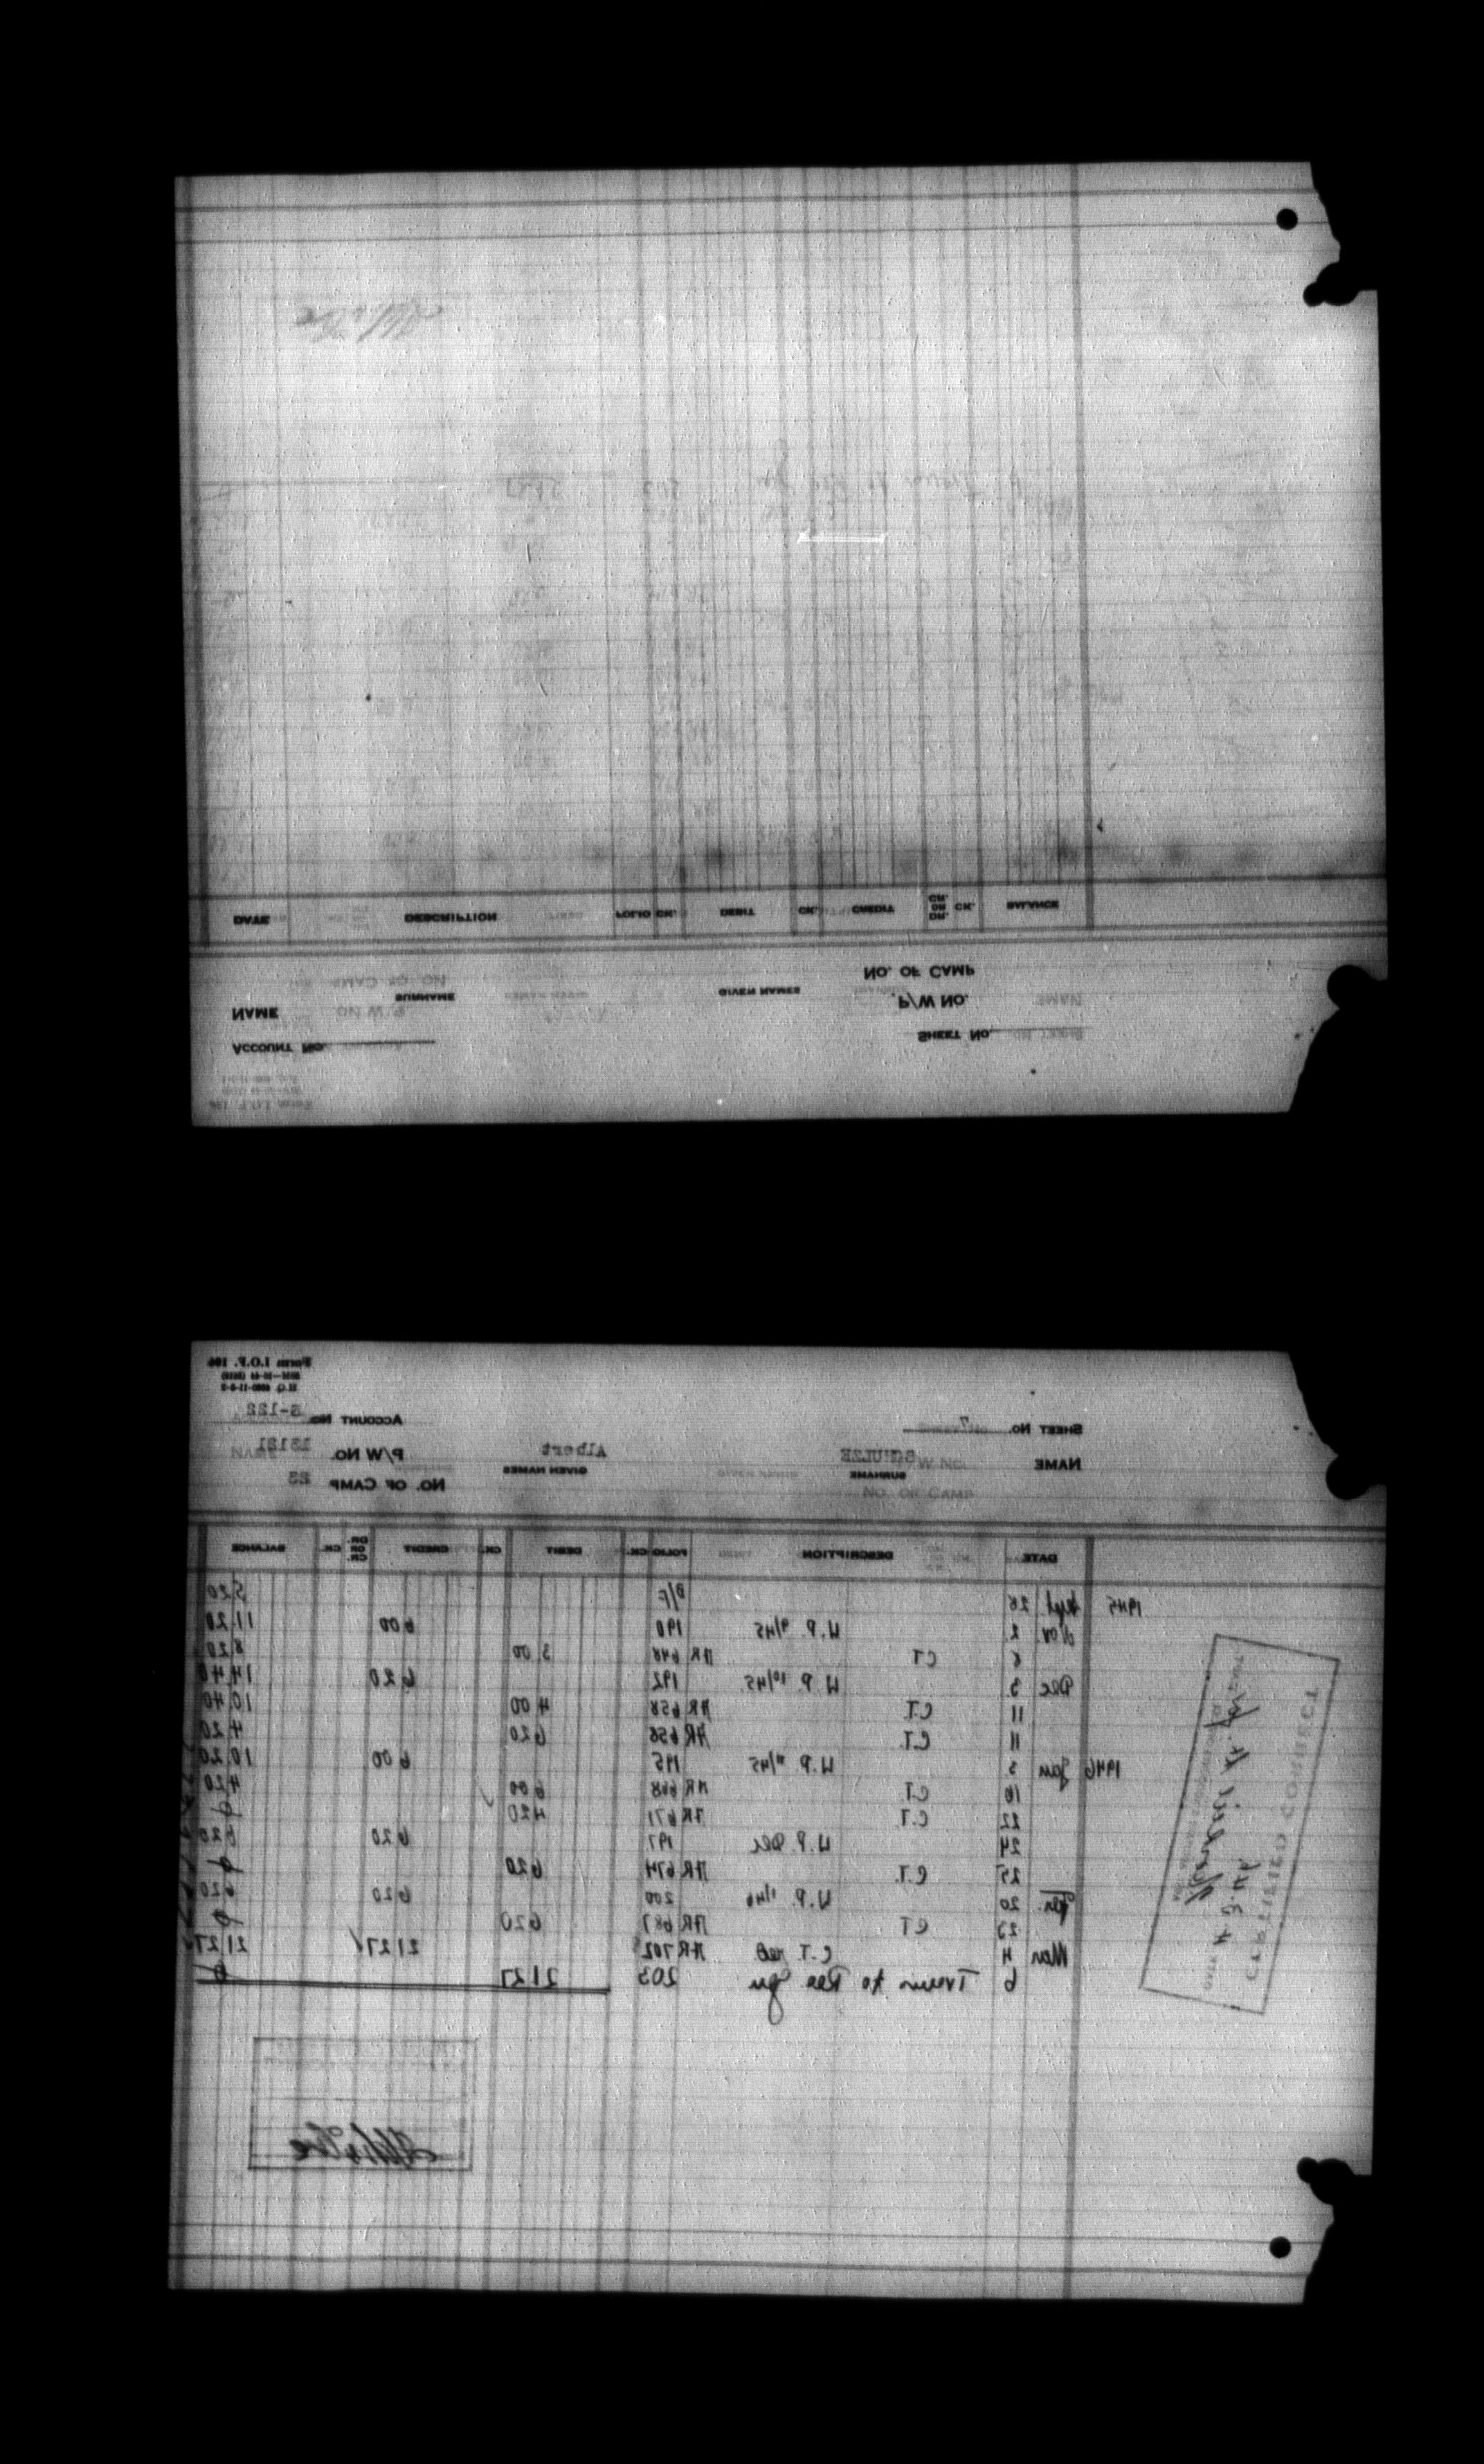 DATE DESCRIPTION FOLIO CK. DEBIT CK. CREDIT CR. OR DR. CK. BALANCE
NO. OF CAMP
NAME SURNAME GIVEN NAMES P/W NO.
ACCOUNT NO. SHEET NO.
Form I.O.F. 106
SHEET NO. 7 ACCOUNT NO. S-122
NAME SCHULZE Albert P/W NO. 13121
SURNAME GIVEN NAMES NO. OF CAMP 23
DATE DESCRIPTION FOLIO CK. DEBIT CK. CREDIT DR. OR CR. CK. BALANCE
1945 Sept 26 B/F 5 20
Nov. 2 W.P. 9/45 190 6 00 11 20
6 CT AR 648 3 00 8 20
Dec 3 W.P. 10/45 192 6 20 14 40
11 C.T. AR 658 4 00 10 40
11 C.T. AR 658 6 20 4 20
1946 Jan 3 W.P. 11/45 195 6 00 10 20
16 C.T. AR 668 6 00 4 20
22 C.T. AR 671 4 20 ø
24 W.P. Dec 197 6 20 6 20
25 C.T. AR 674 6 20 ø
20 W.P. 1/46 200 6 20 6 20
23 CT AR 687 6 20 ø
Mar 4 C.T. AR 702 21 27 21 27
6 to 203 21 27 ø
CERTIFIED CORRECT
DATE 4.3.46